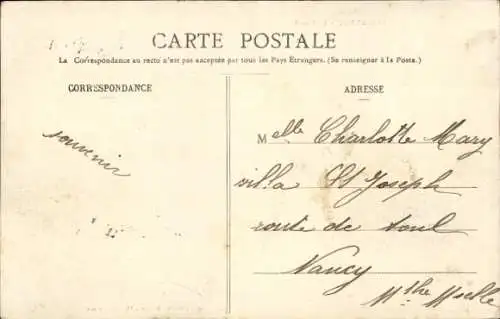 CARTE POSTALE
La Correspondance au recto n'est pas acceptée par tous les Pays Etrangers. (Se renseigner à la Poste.)
CORRESPONDANCE
souvenir
ADRESSE
Melle Charlotte Mary
villa St Joseph
route de toul
Nancy
Mthe Mselle